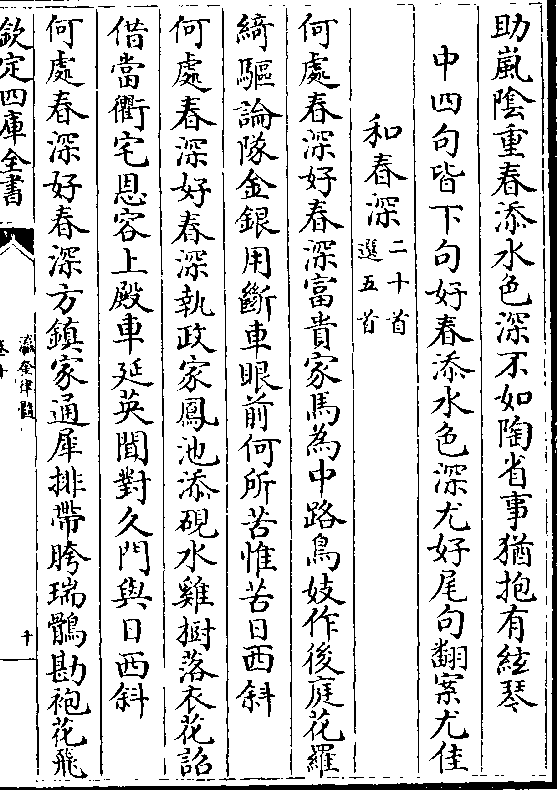 助嵐隂重春添水色深不如陶省事猶抱有絃琴
中四句皆下句好春添水色深尤好尾句翻案尤佳
和春深二十首選五首
何處春深好春深富貴家馬為中路鳥妓作後庭花羅
綺驅論隊金銀用斷車眼前何所苦惟苦日西斜
何處春深好春深執政家鳳池添硯水雞樹落衣花詔
借當衢宅恩容上殿車延英閒對久門與日西斜
何處春深好春深方鎮家通犀排帶胯瑞鶻勘袍花飛
欽定四庫全書
瀛奎律髓
卷十
十